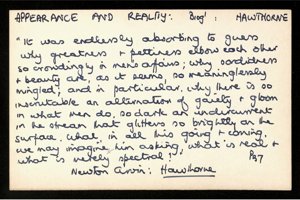 APPEARANCE AND REALITY: Biog': HAWTHORNE
"It was endlessly absorbing to guess
why greatness & pettiness elbow each other
so crowdingly in men's affairs; why sordidness
& beauty are, as it seems, so meaninglessly
mingled; and in particular, why there is so
inscrutable an alternation of gaiety & gloom
in what men do, so dark an undercurrent
in the stream that glitters so brightly on the
surface. What, in all his going & coming,
we may imagine him asking, 'what is real &
what is merely spectral?' P37
Newton Arvin: Hawthorne